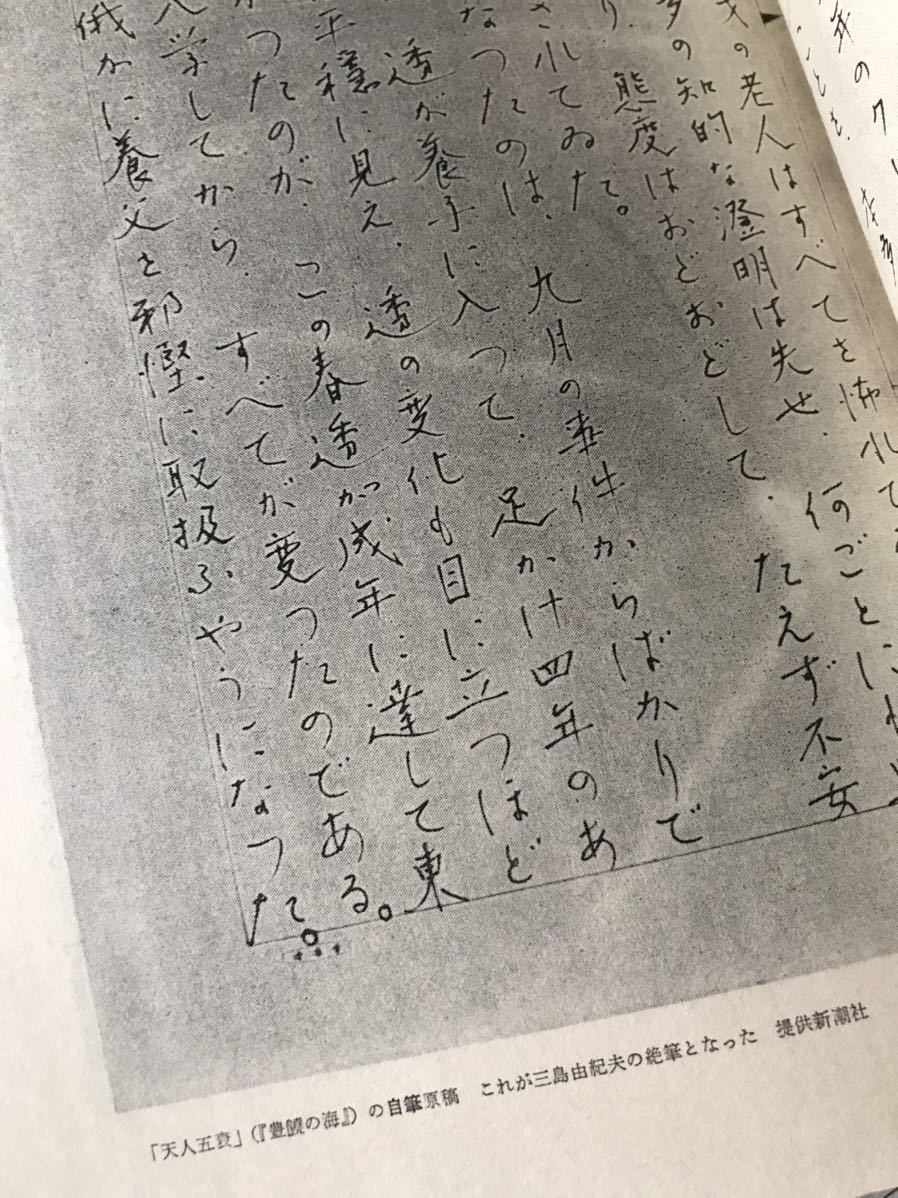 の老人はすべてを怖れて
の知的な澄明は失せ、何ごとにも
り、態度はおどおどして、たえず不安
されてゐた。
なつたのは、九月の事件からばかりで
透が養子に入つて、足かけ四年のあ
平穏に見え、透の変化も目に立つほど
つたのが、この春透が成年に達して東
学してから、すべてが変つたのである。
俄かに養父を邪慳に取扱ふやうになつた。
「天人五衰」(『豊饒の海』)の自筆原稿 これが三島由紀夫の絶筆となった 提供新潮社